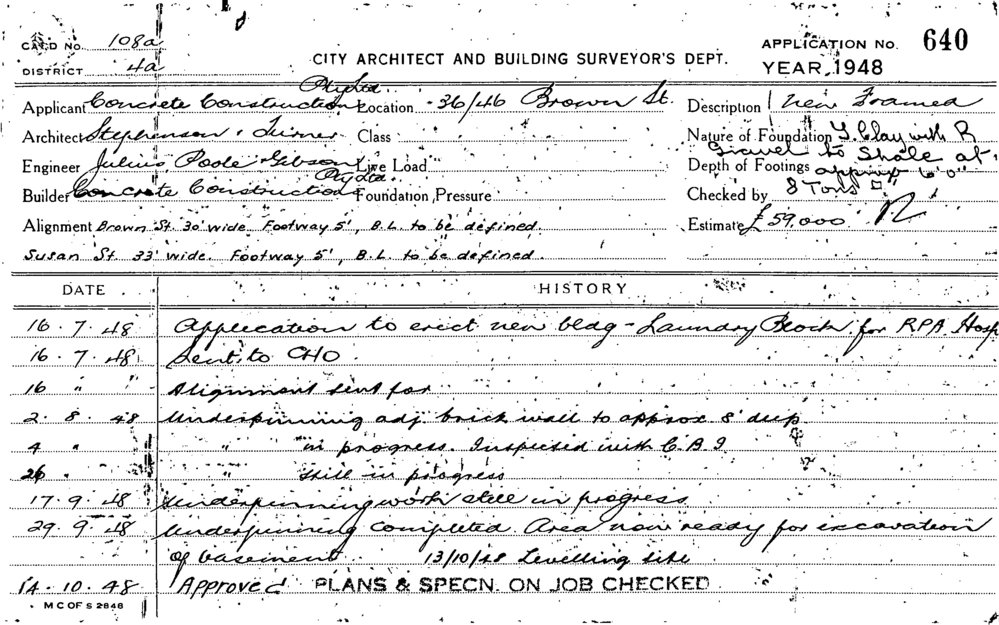 CARD No. 108a
DISTRICT 4a
CITY ARCHITECT AND BUILDING SURVEYOR'S DEPT.
APPLICATION No. 640
YEAR, 1948
Applicant Concrete Constructions Pty Ltd. Location - 36/46 Brown St. Description 1 New Framed
Architect Stephenson & Turner Class Nature of Foundation Y. Clay with R
Gravel to Shale at
Engineer Julius Poole Gibson Live Load Depth of Footings approx 6'0"
Builder Concrete Constructions Pty Ltd. Foundation Pressure Checked by 8 Tons □"
Alignment Brown St. 30' wide. Footway 5', B.L. to be defined. Estimate £59,000
Susan St. 33' wide. Footway 5', B.L. to be defined.
DATE HISTORY
16.7.48 Application to erect new bldg - Laundry Block for R.P.A. Hosp
16.7.48 Sent to CHO.
16 " " Alignment sent for
2.8.48 Underpinning adj. brick wall to approx 8' deep
4 " " in progress. Inspected with C.B.I.
26 " " still in progress
17.9.48 Underpinning work still in progress
29.9.48 Underpinning completed. Area now ready for excavation
of basement 13/10/48 Levelling site
14.10.48 Approved PLANS & SPECN. ON JOB CHECKED
M C OF S 2848